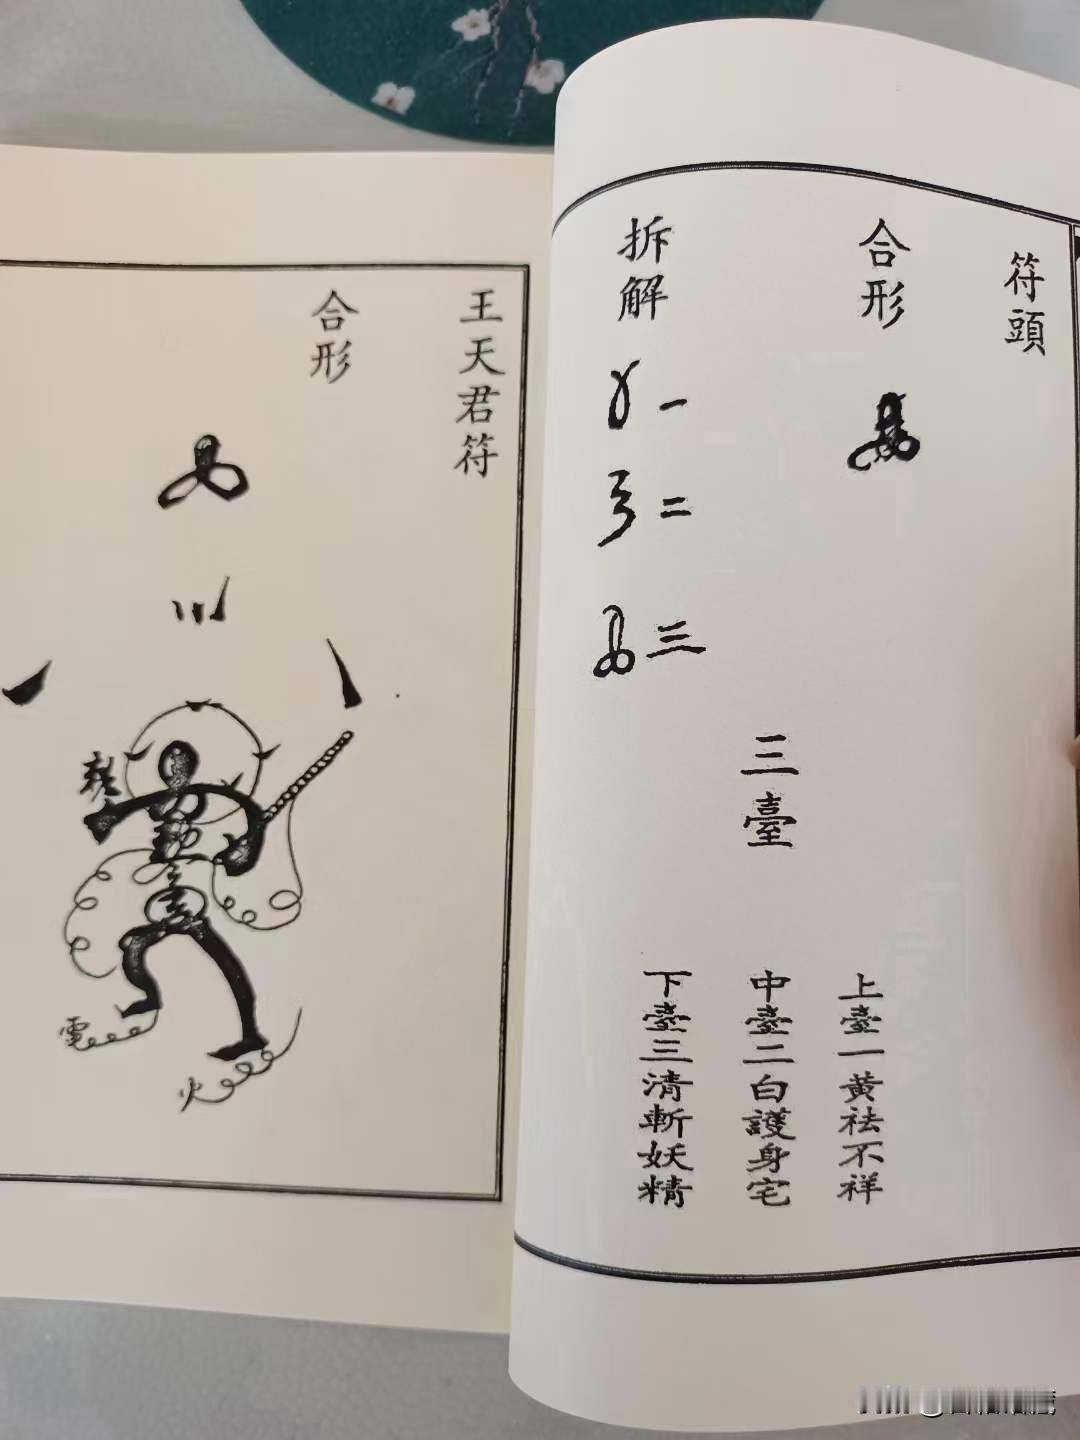 符頭
合形
拆解
一
二
三
三臺
上臺一黃祛不祥
中臺二白護身宅
下臺三清斬妖精
王天君符
合形
電
火